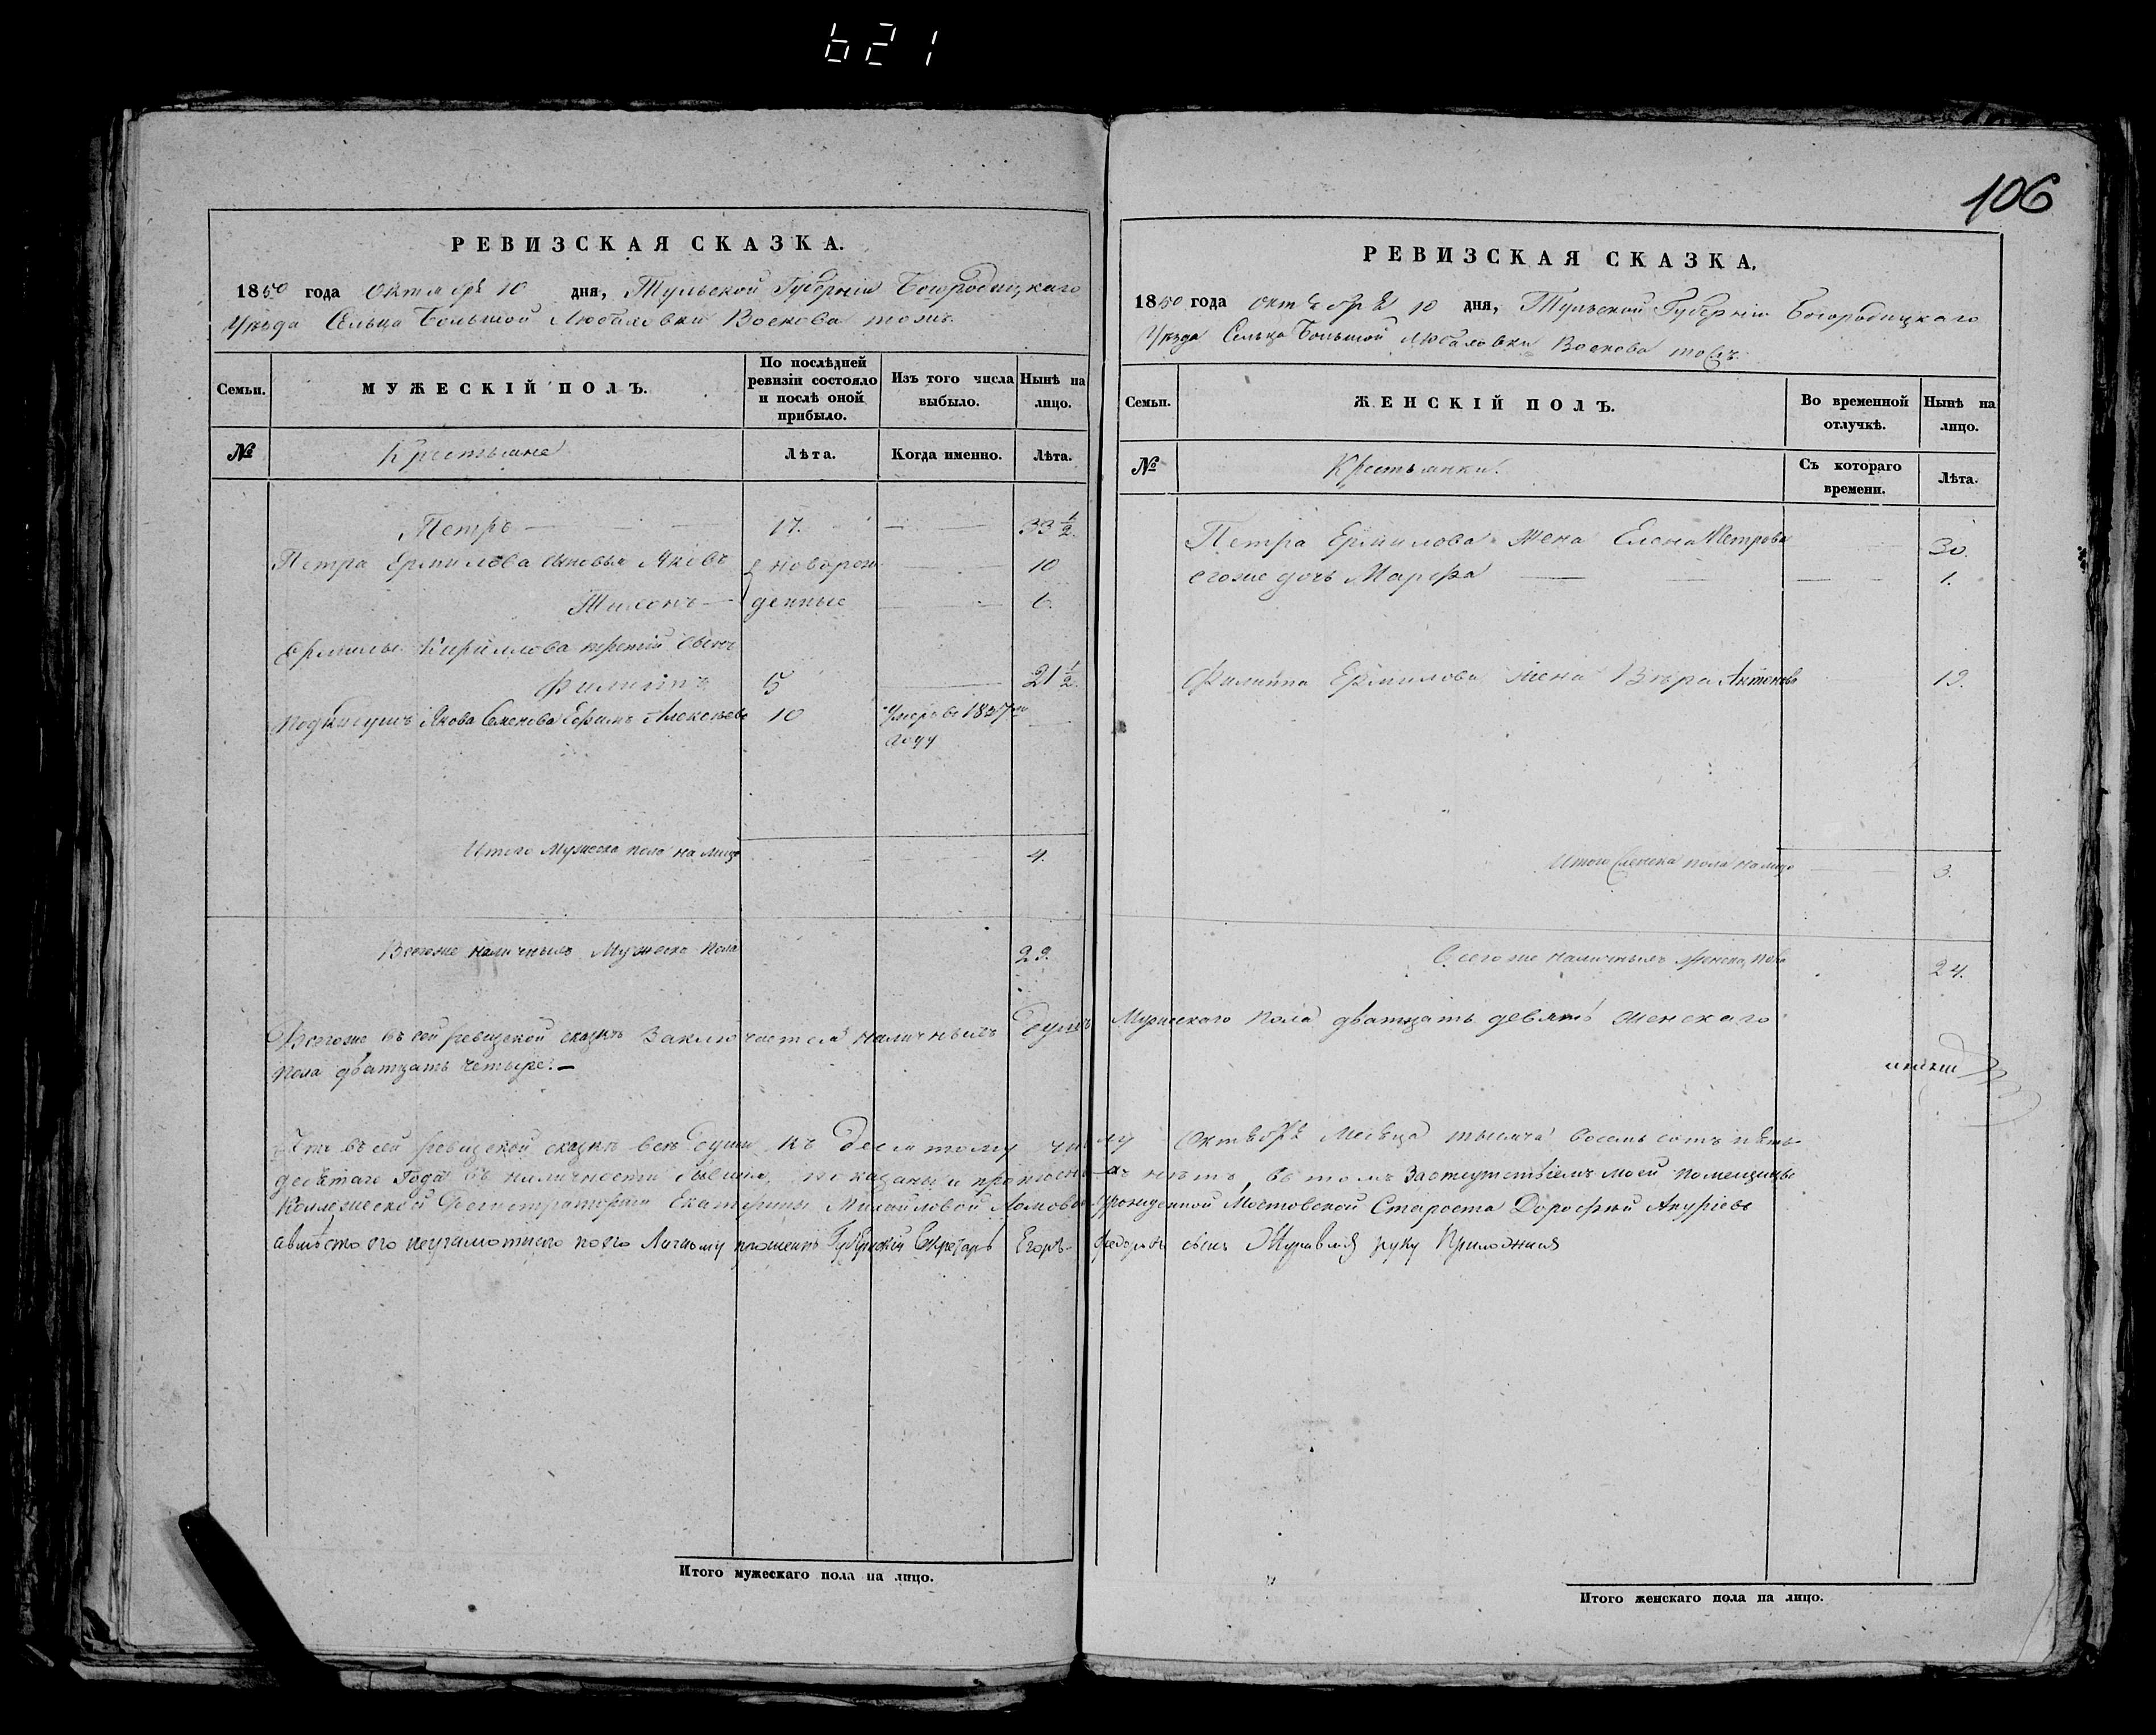 621
106
РЕВИЗСКАЯ СКАЗКА.
1850 года Октября 10 дня, Тульской Губерніи Богородицкаго
Уѣзда Сельца Большой Любаловки Воскова тожъ
Семьи.
МУЖЕСКІЙ ПОЛЪ.
По послѣдней ревизіи состояло и послѣ оной прибыло.
Изъ того числа выбыло.
Нынѣ на лицо.
№
Крестьяне
Лѣта.
Когда именно.
Лѣта.
Петръ 17. 33 1/2.
Петра Ермилова сыновья Яковъ новорож- 10
Тихонъ денные 6.
Ермилы Кириллова третій сынъ
Филиппъ 5 21 1/2.
Подкидушъ Якова Семенова Ефимъ Алексѣевъ 10 Умеръ въ 1837мъ
году
Итого Мужеска пола на лицо 4.
Всегоже наличныхъ Мужеска пола 29.
РЕВИЗСКАЯ СКАЗКА.
1850 года Октября 10 дня, Тульской Губерніи Богородицкаго
Уѣзда Сельца Большой Любаловки Воскова тожъ
Семьи.
ЖЕНСКІЙ ПОЛЪ.
Во временной отлучкѣ.
Нынѣ на лицо.
№
Крестьянки.
Съ котораго времени.
Лѣта.
Петра Ермилова жена Елена Петрова 30.
егоже дочь Марфа 1.
Филиппа Ермилова жена Вѣра Антонова 19.
Итого Женска пола налицо 3.
Всегоже наличныхъ женска пола 24.
Всегоже въ сей ревизской сказкѣ заключается наличныхъ душъ Мужескаго пола дватцать девять женскаго
пола дватцать четыре.
Что въ сей ревизской сказкѣ всѣ души къ десятому числу Октября Месяца тысяча восемь сотъ пять-
десятаго Года въ наличности бывшія, показаны и прописныхъ нѣтъ, въ томъ моей помещицы
Коллежской Регистраторши Екатерины Михайловой урожденной Мостовской Староста Дорофѣй
а вмѣсто его неграмотнаго по его Личному прошенію Губернскій Секретарь Егоръ Федоровъ сынъ Журавлев руку Приложилъ
Итого мужескаго пола на лицо.
Итого женскаго пола на лицо.